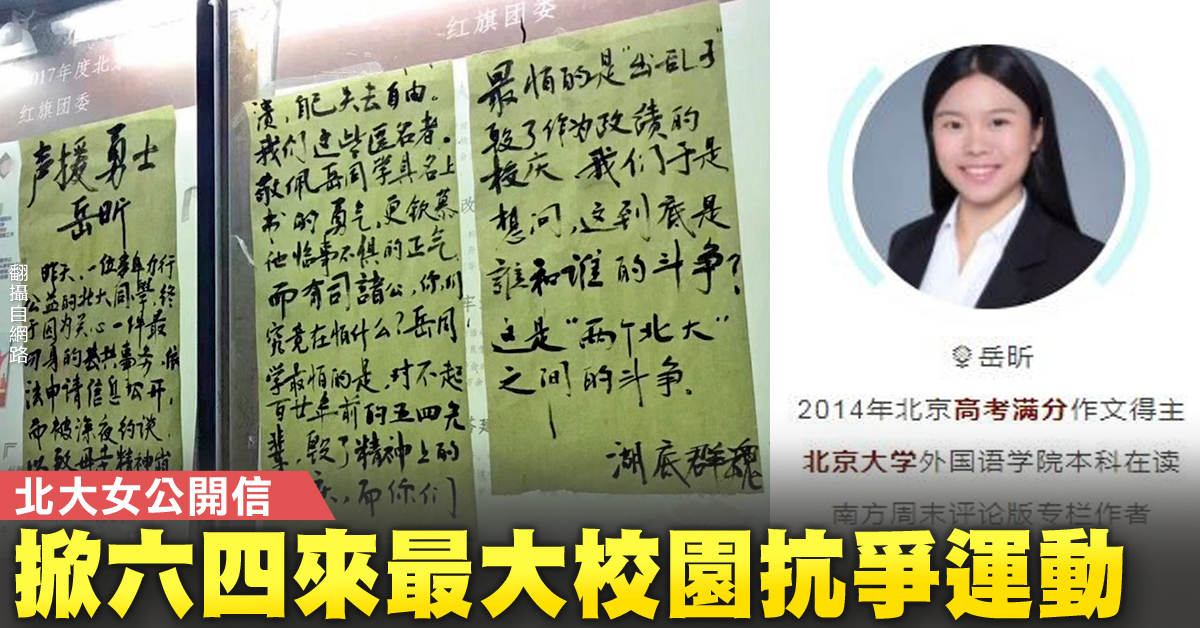 2017年度北京
红旗团委
红旗团委
声援勇士
岳昕
昨天,一位李
公益的北大同學,終
于因为关心一件最
切身的公共事务,依
法申请信息公开,
而被深夜约谈,
以致母子精神崩
溃,自己失去自由。
我们这些匿名者。
敬佩岳同学具名上
书的勇气,更钦慕
他临事不惧的正气
而有司諸公,你们
究竟在怕什么?岳同
学最怕的是,对不起
百廿年前的五四先
辈,毁了精神上的
而你们
最怕的是"出乱子"
毁了作为政绩的
校庆 我们于是
想问,这到底是
誰和谁的斗争?
这是"两个北大"
之间的斗争。
湖底群魂
翻攝自網路
岳昕
2014年北京高考满分作文得主
北京大学外国语学院本科在读
南方周末评论版专栏作者
北大女公開信
掀六四來最大校園抗爭運動